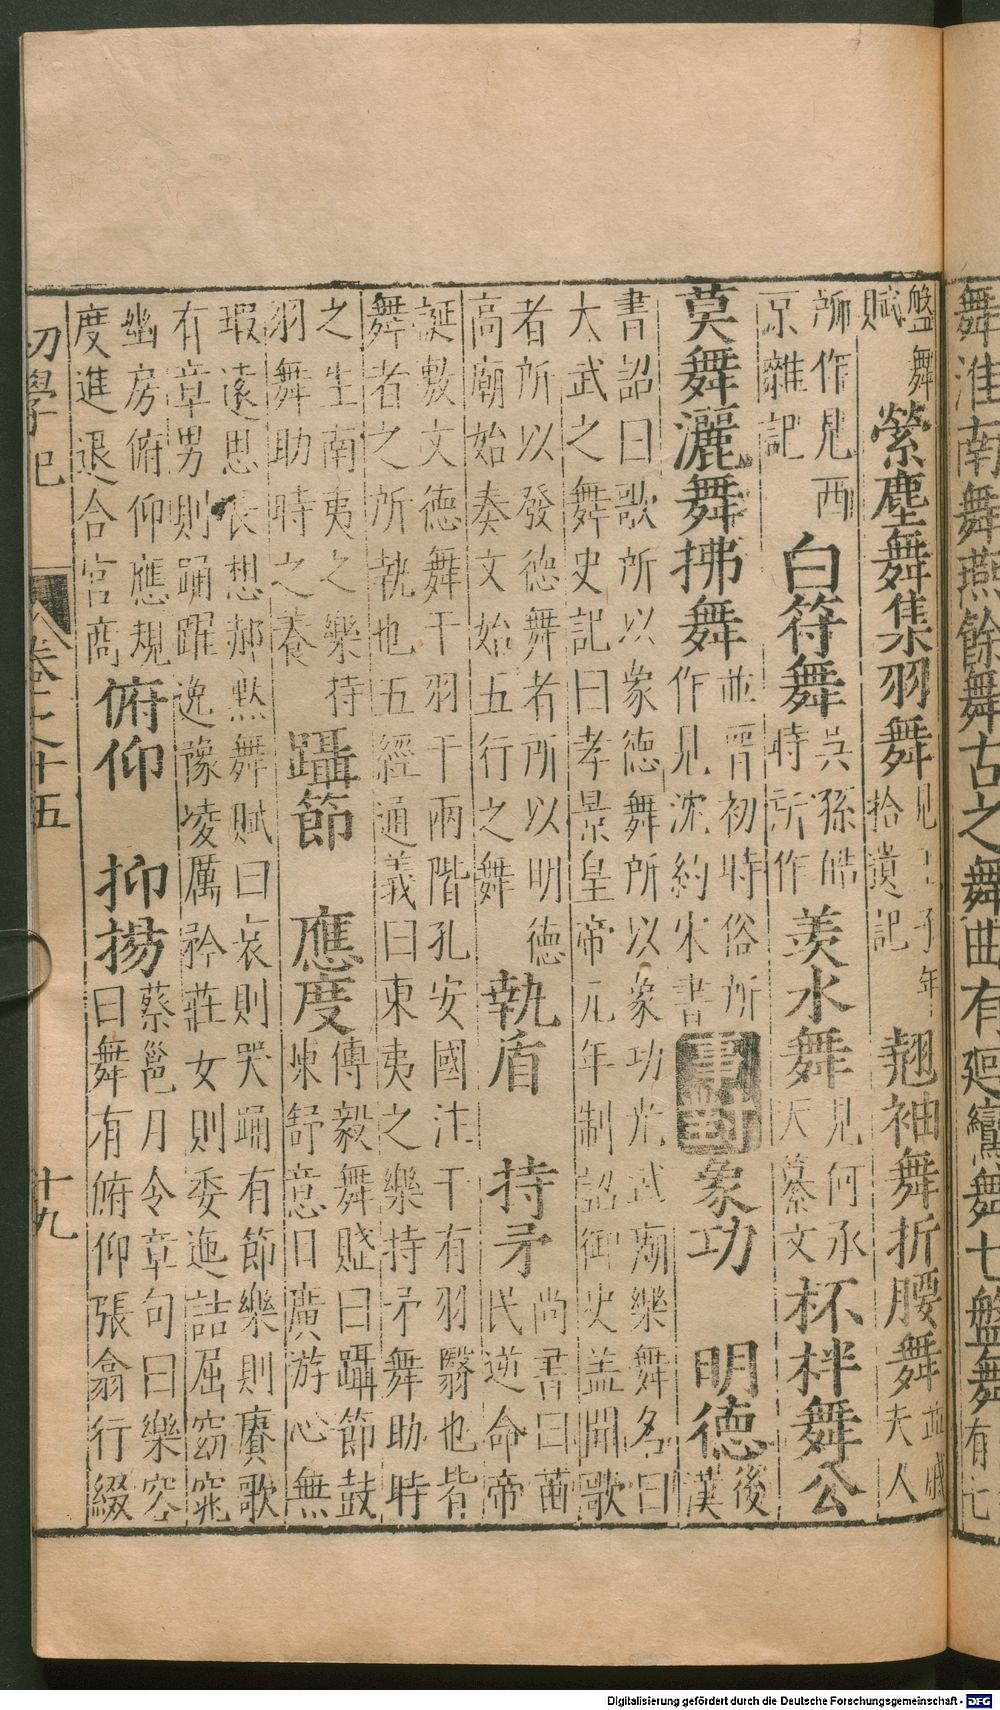 舞淮南舞燕餘舞古之舞曲有廻鸞舞七盤舞有七
盤舞賦縈塵舞集羽舞見王子年拾遺記翹袖舞折腰舞並戚夫人
所作見西京雜記白符舞吳孫皓時所作羨水舞見何承天纂文杯柈舞公
莫舞灑舞拂舞並晉初時俗所作見沈約宋書事對象功 明德後漢
書詔曰歌所以象德舞所以象功光武廟樂舞名曰
大武之舞史記曰孝景皇帝元年制詔御史蓋聞歌
者所以發德舞者所以明德高廟始奏文始五行之舞執盾 持矛尚書曰苗民逆命帝
誕敷文德舞干羽干兩階孔安國注干有羽翳也皆
舞者之所執也五經通義曰東夷之樂持矛舞助時
之生南夷之樂持羽舞助時之養躡節 應度傅毅舞賦曰躡節鼓陳舒意曰廣游心無
瑕遠思長想郝黙舞賦曰哀則哭踊有節樂則賡歌
有章男則踊躍逸豫凌厲矜莊女則委迤詰屈窈窕
幽房俯仰應規度進退合宮商俯仰 抑揚蔡邕月令章句曰樂容曰舞有俯仰張翕行綴
初學記 卷之十五 十九
Digitalisierung gefördert durch die Deutsche Forschungsgemeinschaft - DFG